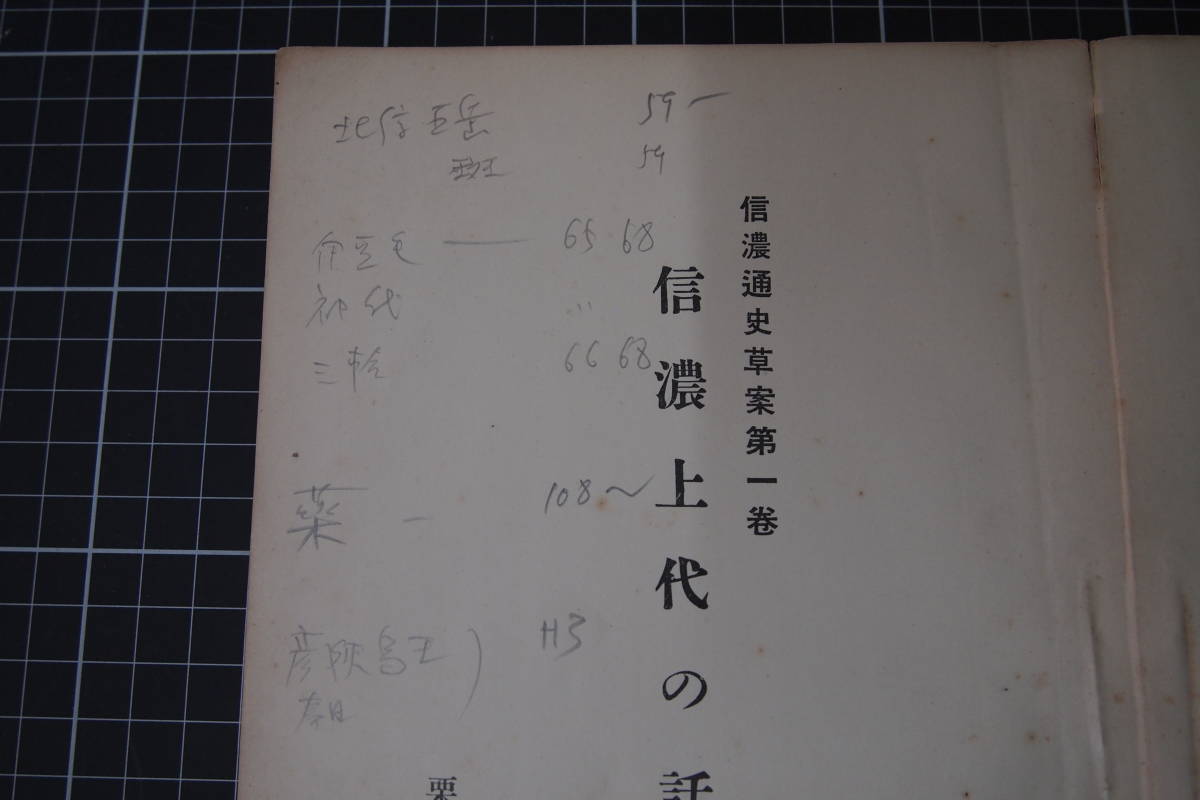 信濃通史草案第一卷
信濃上代の話
栗
北信五岳 59ー
斑 59
伊豆毛 — 65 68
神代 〃
三輪 66 68
薬 — 108〜
彦狭島王)
春日